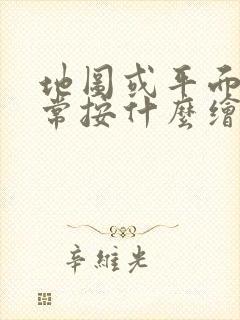 地圖或平而
常按什麼繪
辛維光